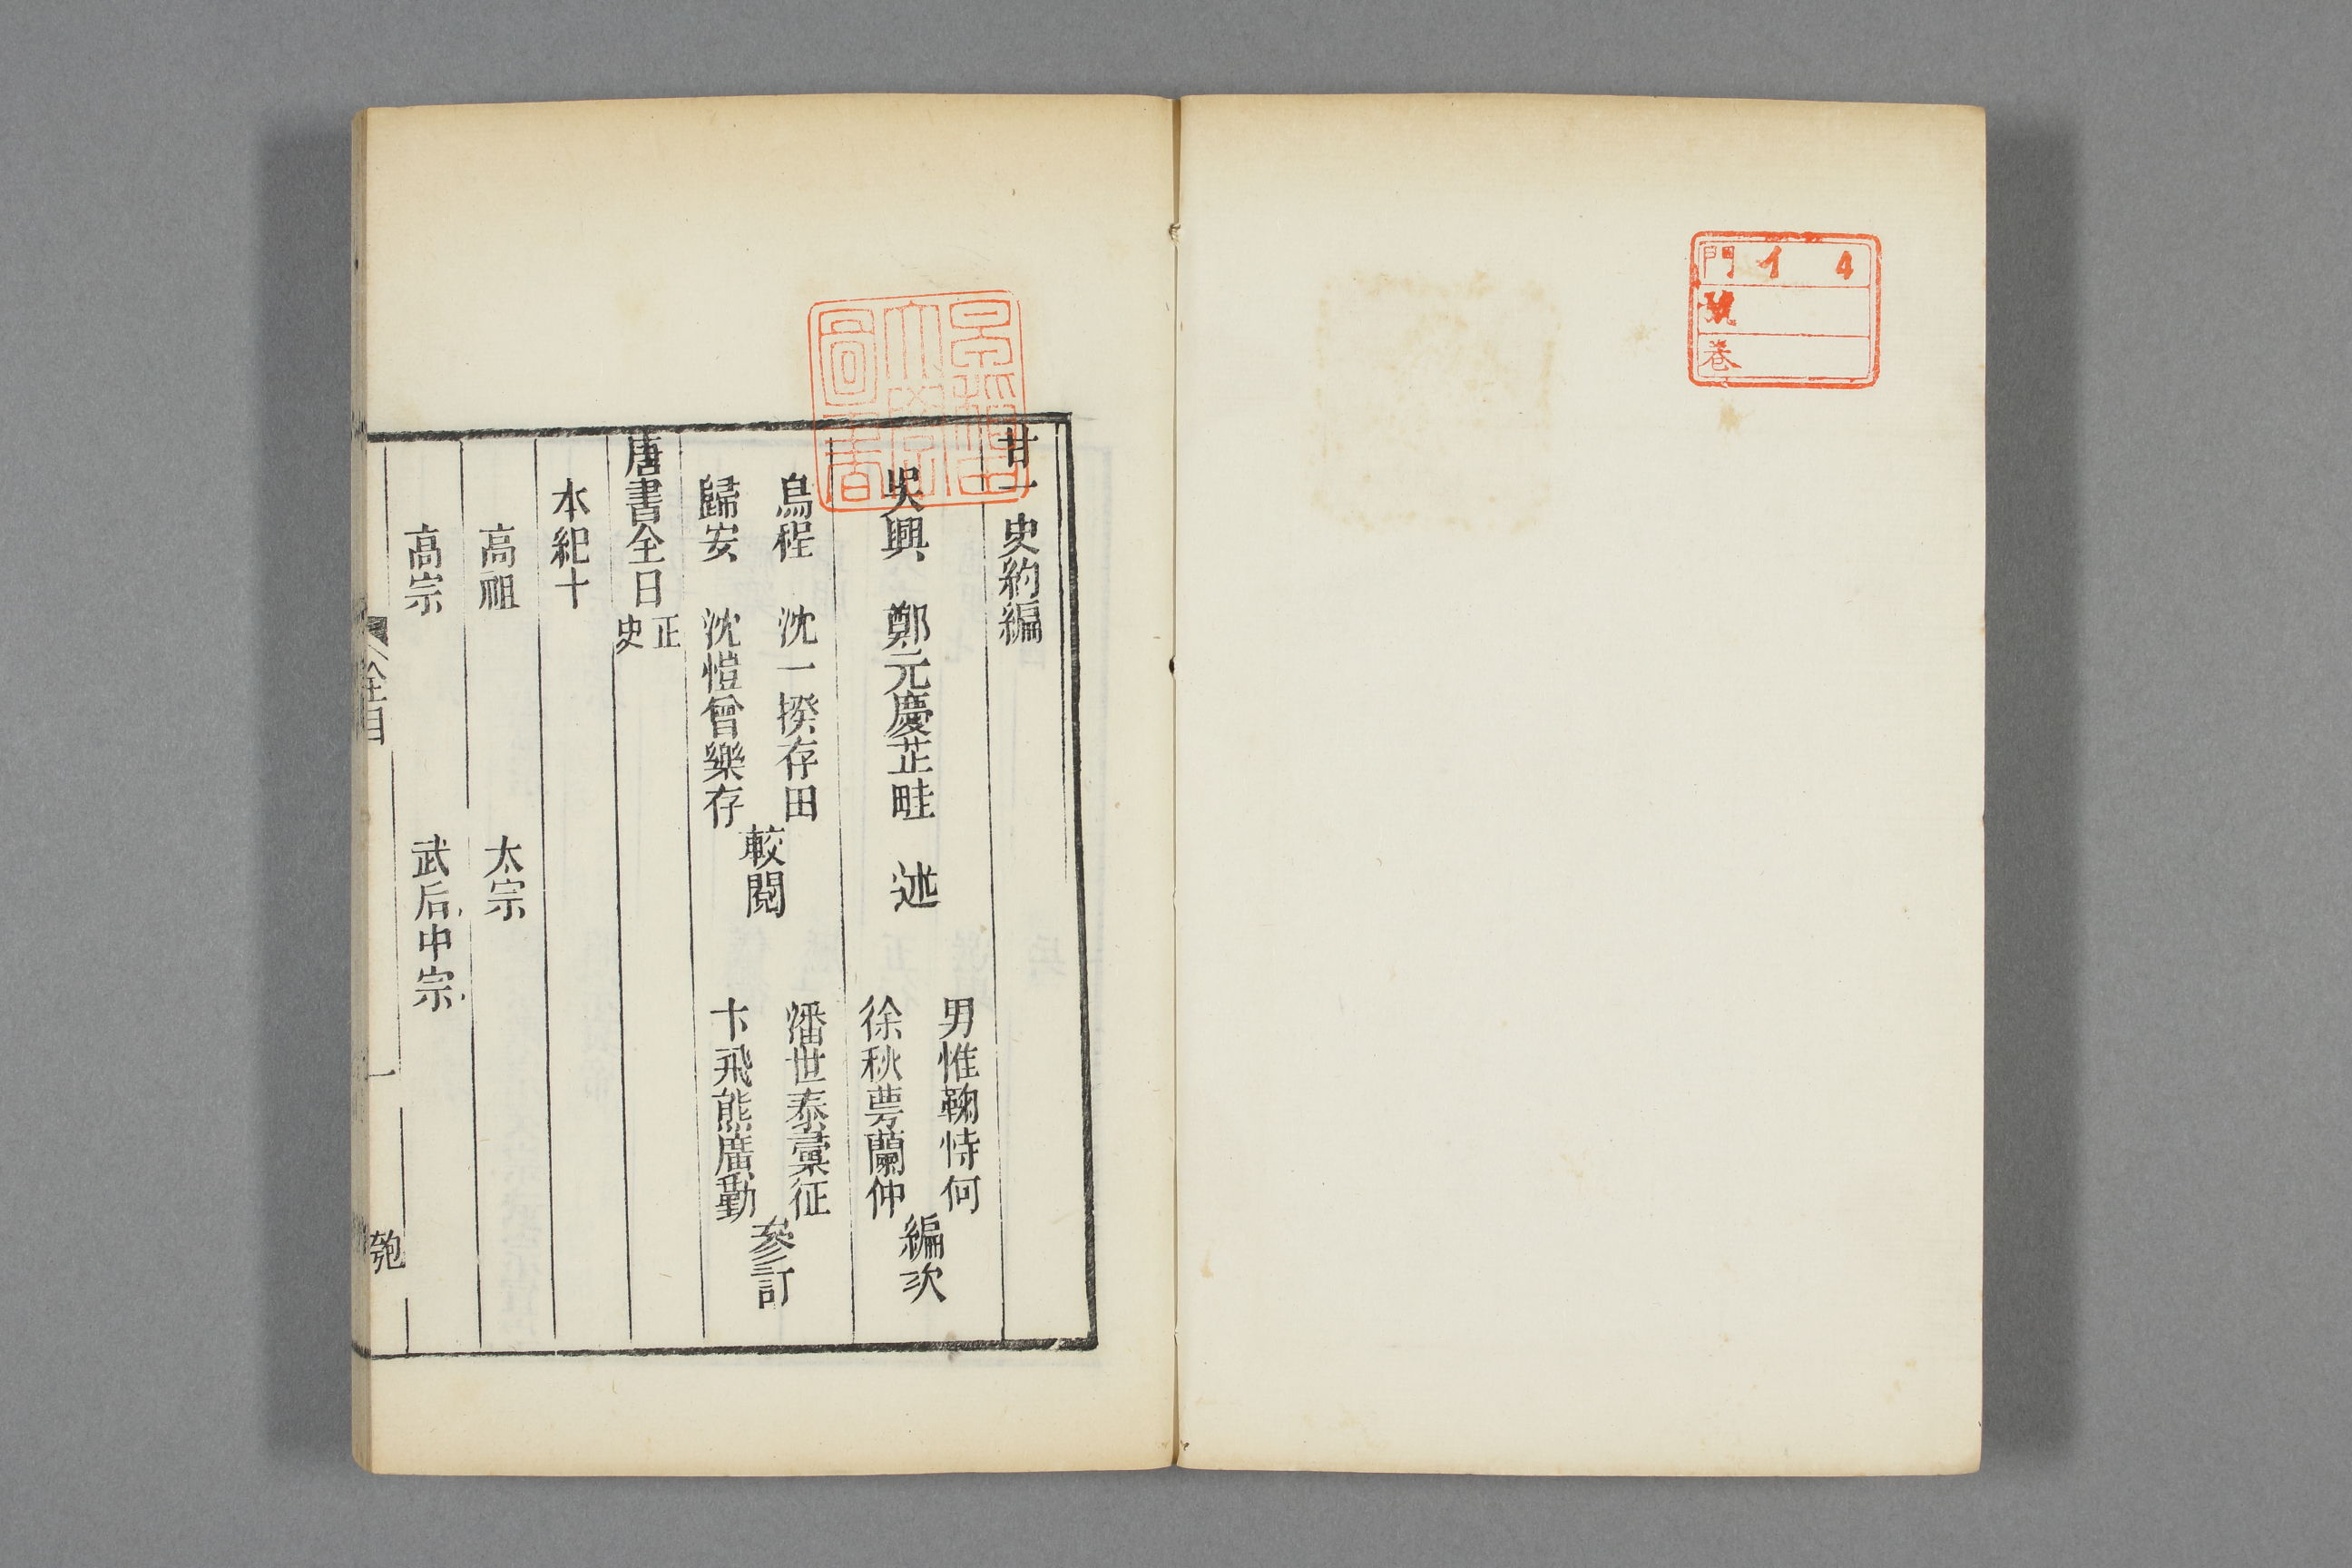 門 イ 4
號
卷
廿一史約編
吳興 鄭元慶芷畦 述
男惟鞠恃何
徐秋蕚蘭仲
編次
烏程 沈一揆存田
歸安 沈愷曾樂存
較閱
潘世泰彙征
卞飛熊廣勤
參訂
唐書全目 正史
本紀十
高祖 太宗
高宗 武后中宗
全目 一 匏